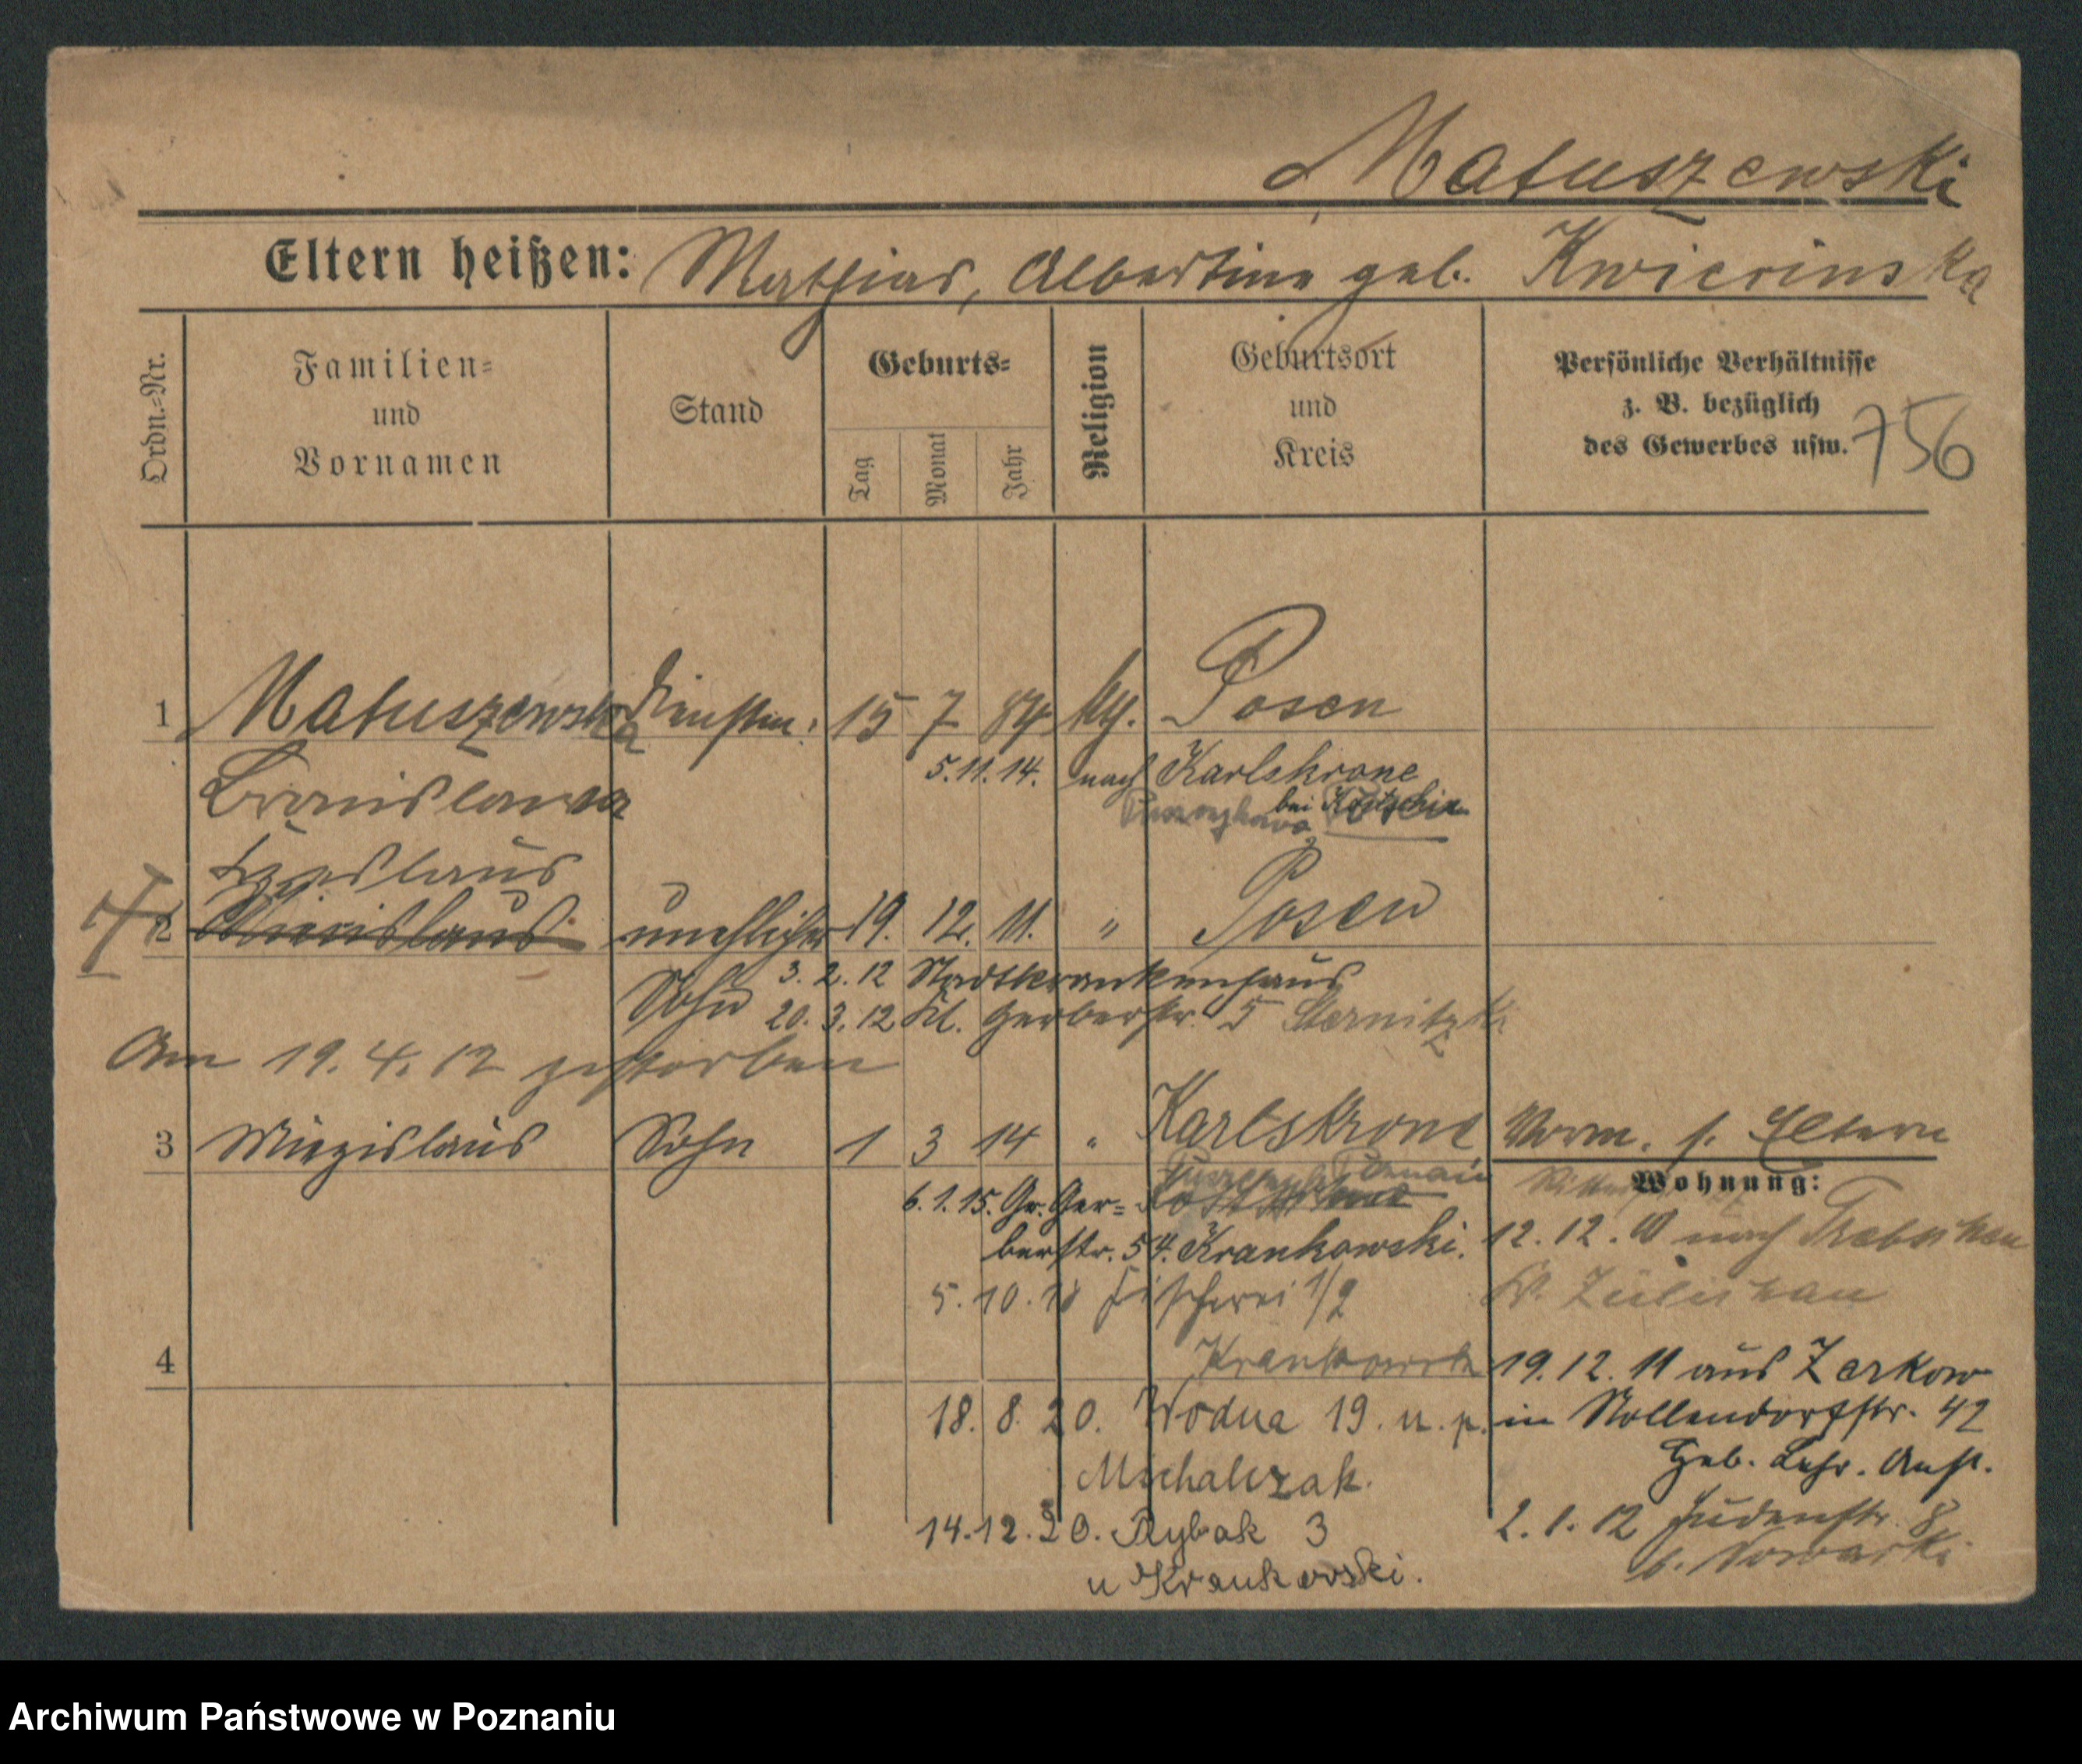 Matuszewski
Eltern heißen: Mathias, Albertine geb. Kwiecinska
Ordn.-Nr.
Familien-
und
Vornamen
Stand
Geburts-
Tag
Monat
Jahr
Religion
Geburtsort
und
Kreis
Persönliche Verhältnisse
z. B. bezüglich
des Gewerbes usw.
756
1 Matuszewska Dienstm. 15 7 84 kth. Posen
Bronislawa
5.11.14. nach Karlskrone
bei Kostschin
Czeslaus
2 Miecislaus unehlicher 19. 12. 11. " Posen
Sohn 3.2.12 Stadtkrankenhaus
20.3.12 Kl. Gerberstr. 5 Sternitzki
Am 19.4.12 gestorben
3 Miezislaus Sohn 1 3 14 " Karlskrone
Vorm. s. Eltern
Wohnung:
6.1.15. Gr. Ger-
berstr. 54. Krankowski.
5.10.18 Fischerei 1/2
Krankowski
4
18.8.20. Wodna 19. u. p.
Michalczak.
14.12.20. Rybak 3
u Krankowski.
12.12.11 nach Trebschen
Kr. Züllichau
19.12.11 aus Zerkow
in Nollendorfstr. 42
Geb. Lehr. Anst.
2.1.12 Judenstr. 8
b. Nowacki
Archiwum Państwowe w Poznaniu